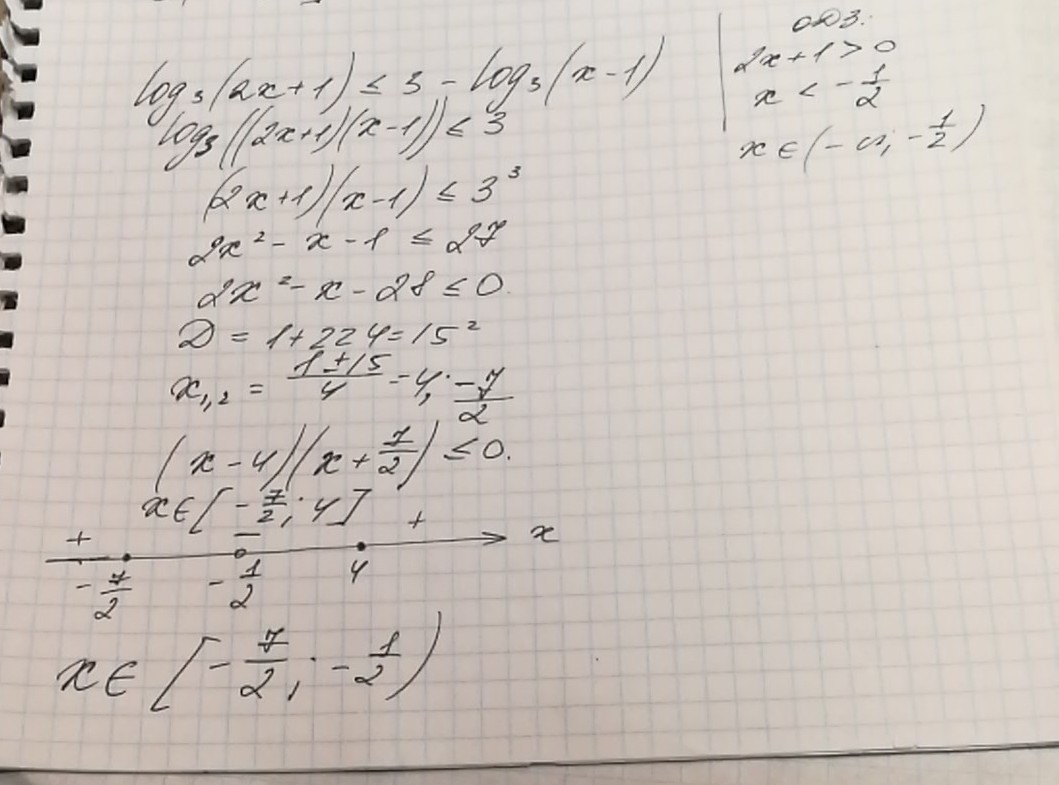 log₃(2x+1) ≤ 3 - log₃(x-1)
log₃((2x+1)(x-1)) ≤ 3
(2x+1)(x-1) ≤ 3³
2x² - x - 1 ≤ 27
2x² - x - 28 ≤ 0.
D = 1+224 = 15²
x₁,₂ = (1±15)/4 = 4; -7/2
(x-4)(x+7/2) ≤ 0.
x∈[-7/2; 4]
+ - + x
-7/2 -1/2 4
x∈[-7/2; -1/2)
ОДЗ.
2x+1 > 0
x < -1/2
x∈(-∞; -1/2)